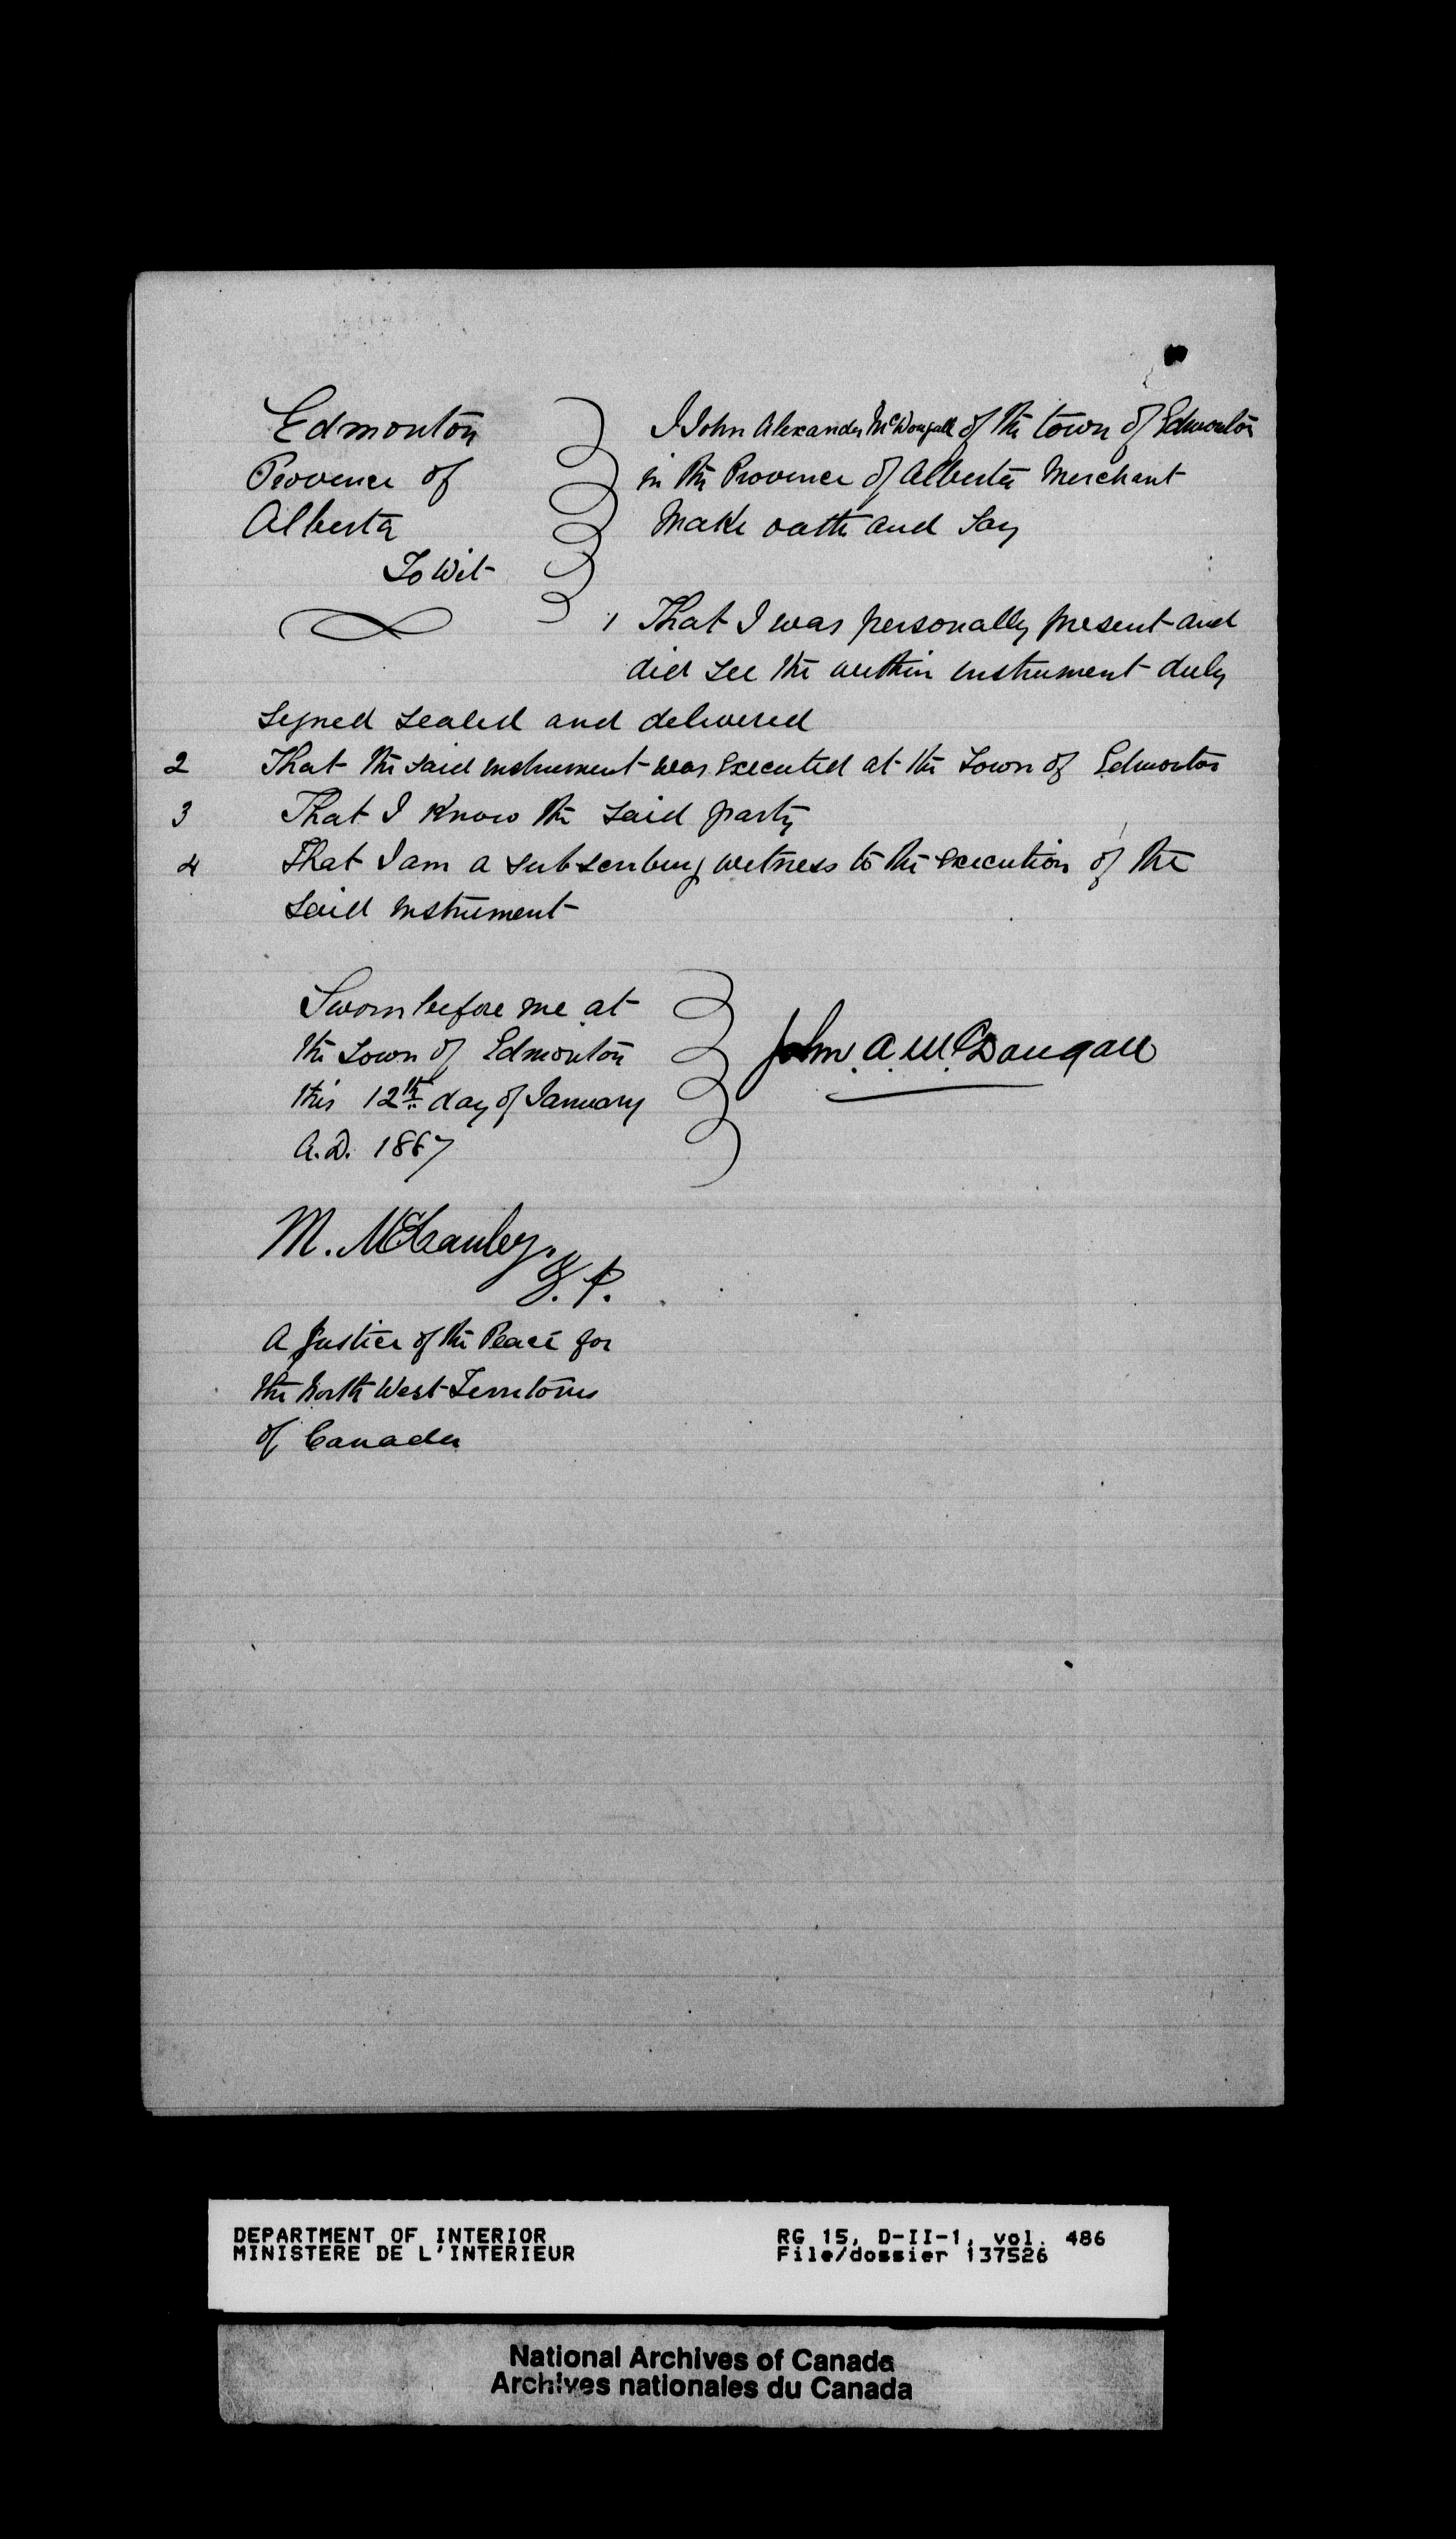 Edmonton
Province of
Alberta
To Wit
I John Alexander McDougall of the town of Edmonton
in the Province of Alberta Merchant
Make oath and Say
1 That I was personally present and
did see the within instrument duly
signed sealed and delivered
2 That the said instrument was executed at the Town of Edmonton
3 That I know the said party
4 That I am a subscribing witness to the execution of the
said instrument
Sworn before me at
the Town of Edmonton
this 12th day of January
A.D. 1867
John. A. McDougall
M. McCauley.
J. P.
A Justice of the Peace for
the North West Territories
of Canada
DEPARTMENT OF INTERIOR
MINISTERE DE L'INTERIEUR
RG 15, D-II-1, vol. 486
File/dossier 137526
National Archives of Canada
Archives nationales du Canada